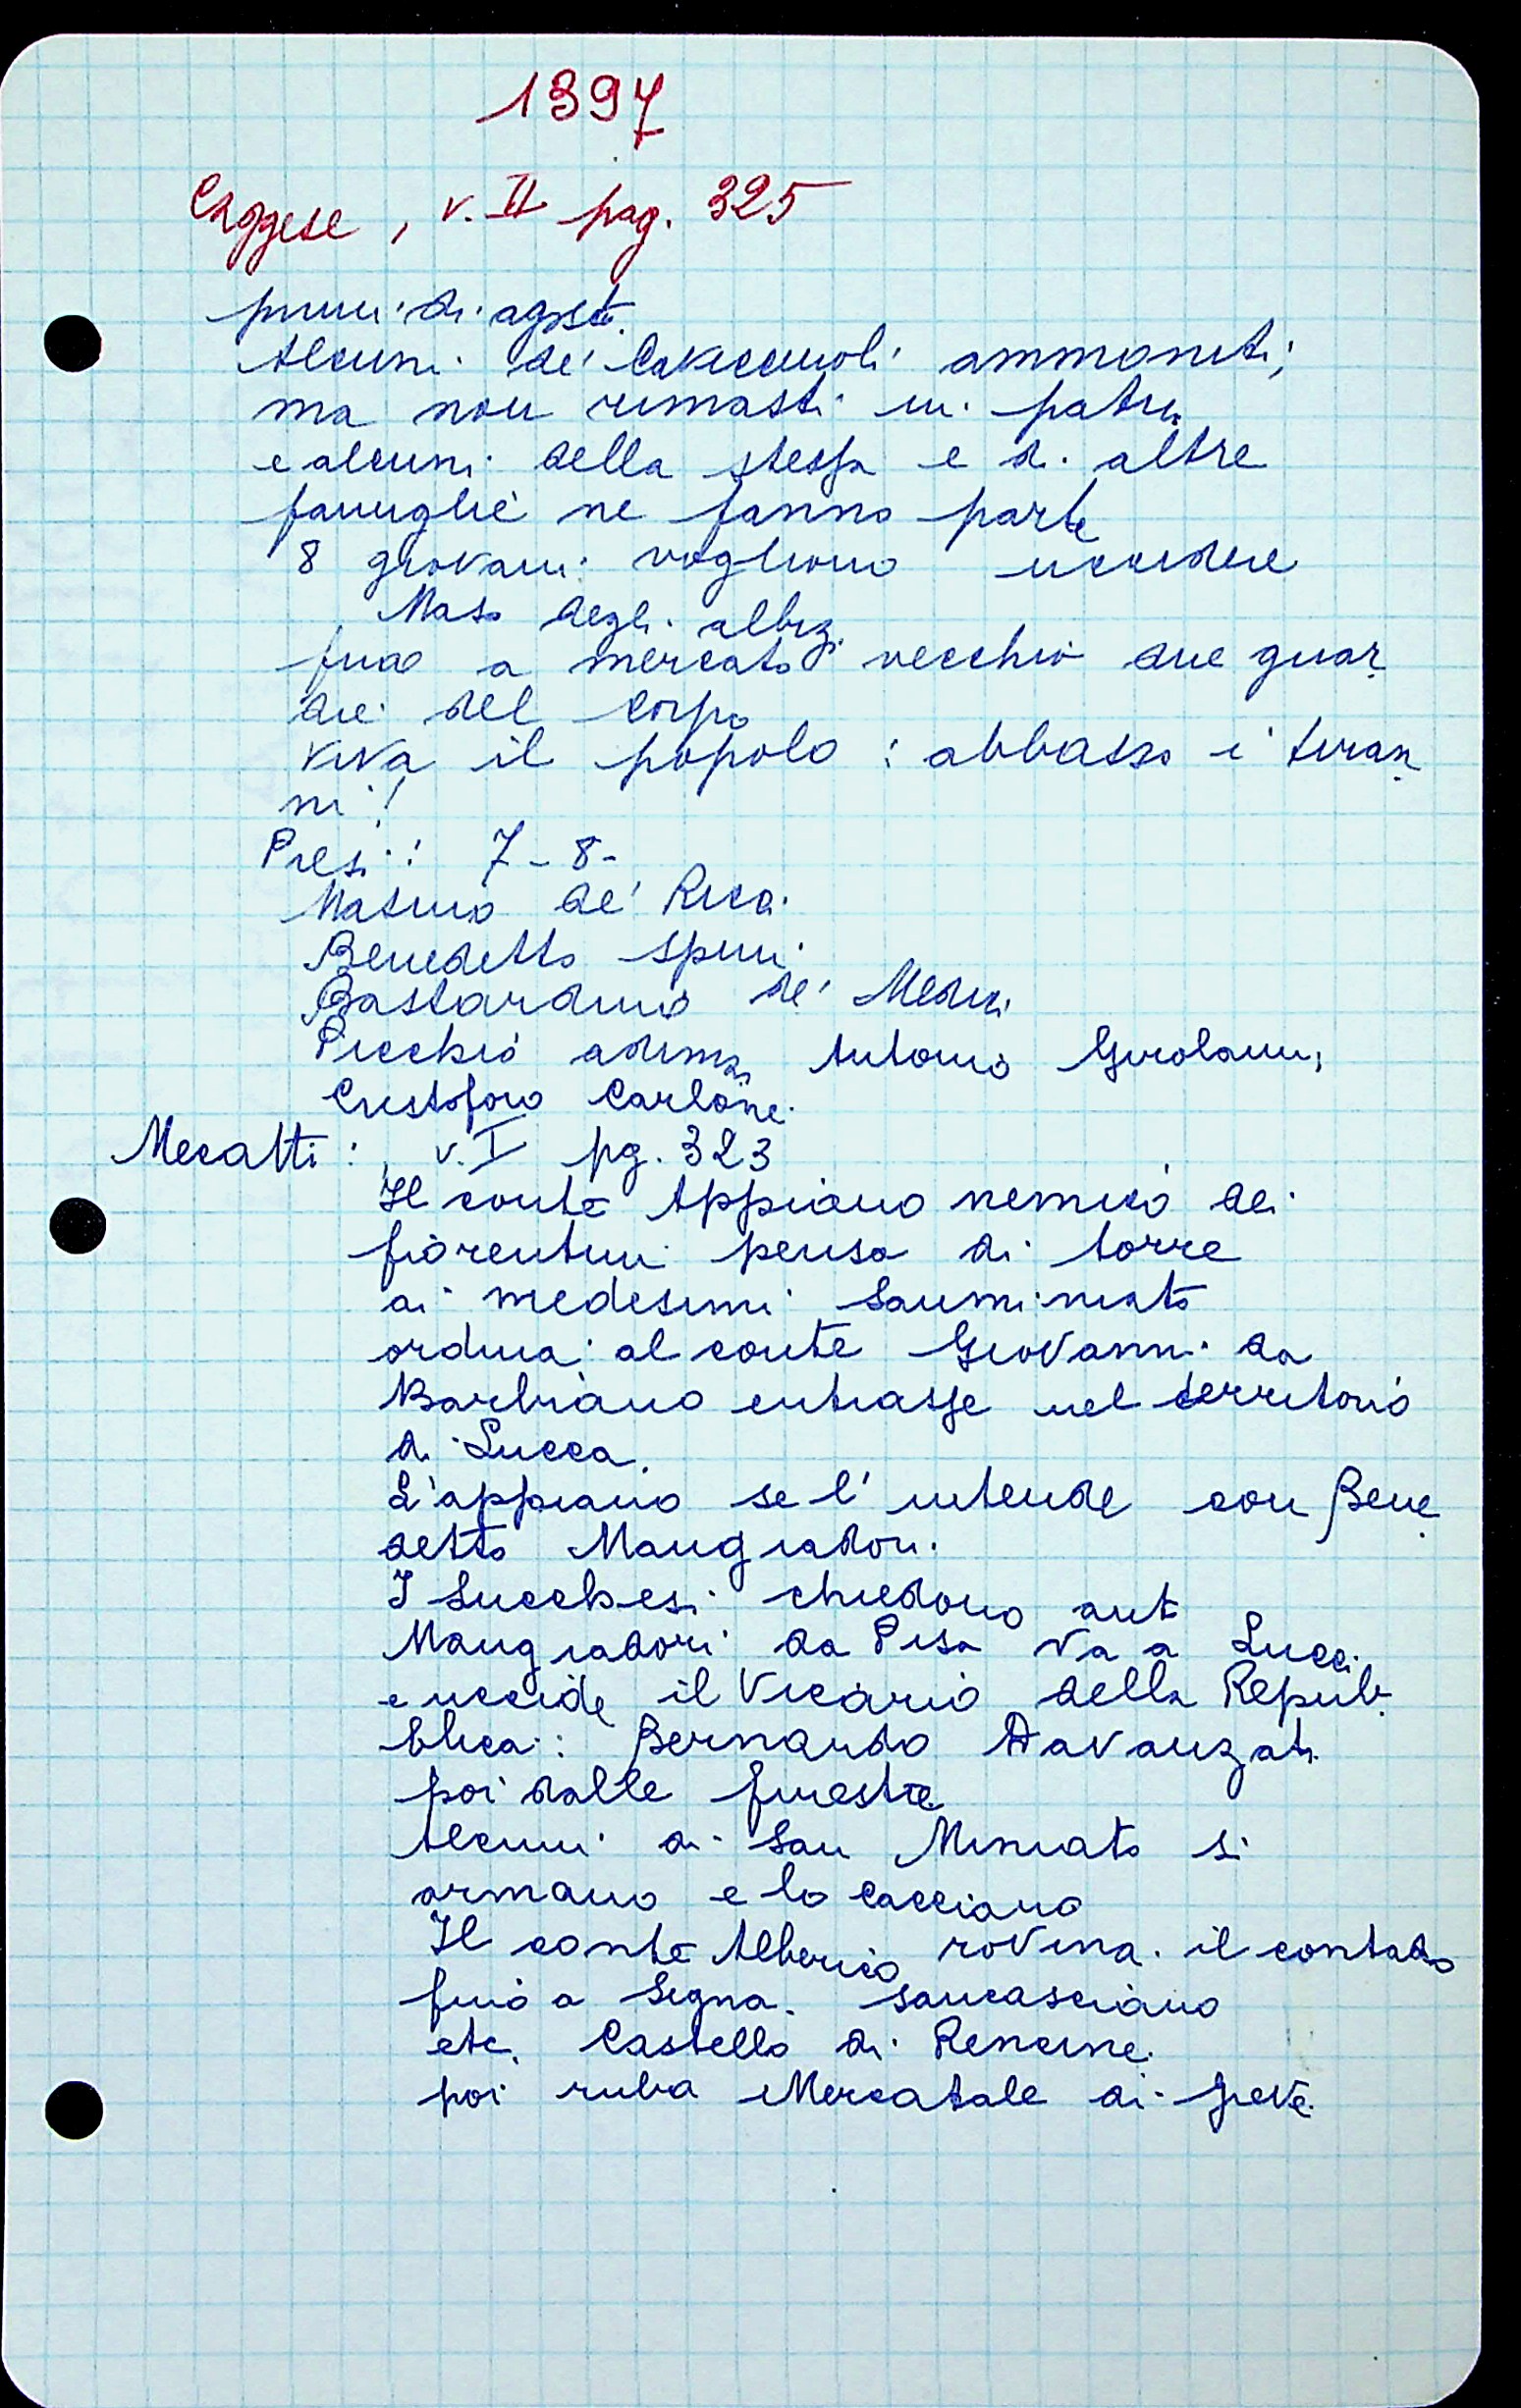 1397
Caggese, v. II pag. 325
primi di agosto.
Alcuni de' Cavicciuoli ammoniti;
ma non rimasti in patria
e alcuni della stessa e di altre
famiglie ne fanno parte
8 giovani vogliono uccidere
Maso degli albizi.
a mercato vecchio due guar
die del corpo
viva il popolo: abbasso i tiran
ni!
Presi: 7-8-
Masino de' Ricci
Benedetto Spini
Bastardino de' Medici
Picchio adimari Antonio Girolami,
Cristoforo Carlone.
Mecatti: v. I pg. 323
Il conte Appiano nemico dei
fiorentini pensa di torre
ai medesimi Samminiato
ordina al conte Giovanni da
Barbiano entrasse nel territorio
di Lucca.
L'appiano se l'intende con Bene
detto Mangiadori.
I Lucchesi chiedono aiuto
Mangiadori da Pisa va a Lucca
e uccide il Vicario della Repub
blica: Bernardo Davanzati
poi dalle finestre
Alcuni di San Miniato si
armano e lo cacciano
Il conte Alberico rovina il contado
fino a Signa. Sancasciano
etc. Castello di Rencine.
poi ruba Mercatale di Greve.